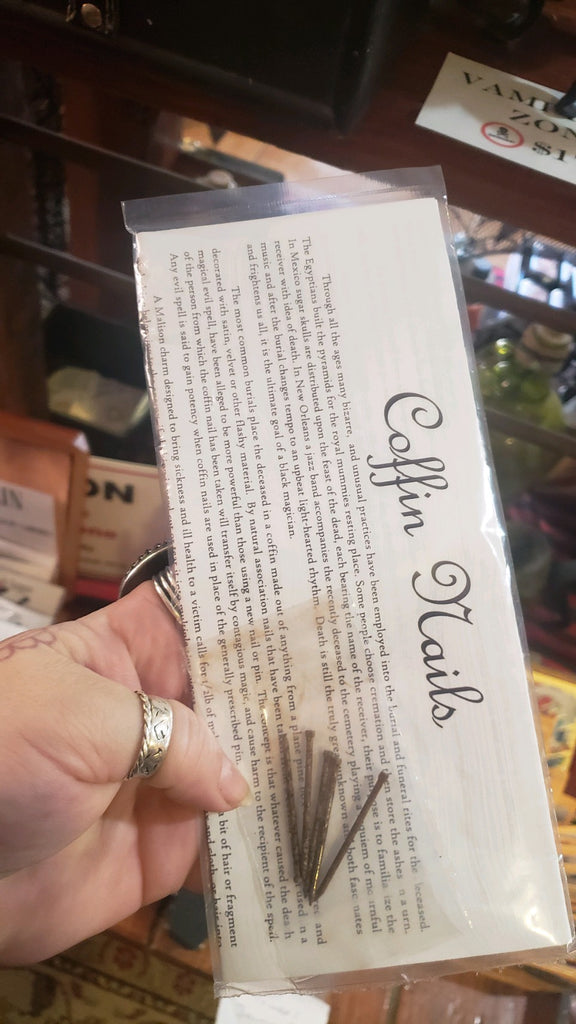 Coffin Nails
Through all the ages many bizarre, and unusual practices have been employed into the burial and funeral rites for the deceased.
The Egyptians built the pyramids for the royal mummies resting place. Some people choose cremation and then store the ashes in a urn.
In Mexico sugar skulls are distributed upon the feast of the dead, each bearing the name of the receiver, their purpose is to familiarize the
receiver with idea of death. In New Orleans a jazz band accompanies the recently deceased to the cemetery playing a requiem of mournful
music and after the burial changes tempo to an upbeat light-hearted rhythm. Death is still the truly great unknown and both fascinates
and frightens us all, it is the ultimate goal of a black magician.
The most common burials place the deceased in a coffin made out of anything from a plane pine box and
decorated with satin, velvet or other flashy material. By natural association nails that have been taken used in a
magical evil spell, have been alleged to be more powerful than those using a new nail or pin. The concept is that whatever caused the death
of the person from which the coffin nail has been taken will transfer itself by contagious magic, and cause harm to the recipient of the spell.
Any evil spell is said to gain potency when coffin nails are used in place of the generally prescribed pin.
A Malison charm designed to bring sickness and ill health to a victim calls for 1/2lb of a bit of hair or fragment
VAMP
ZON
$1
ON